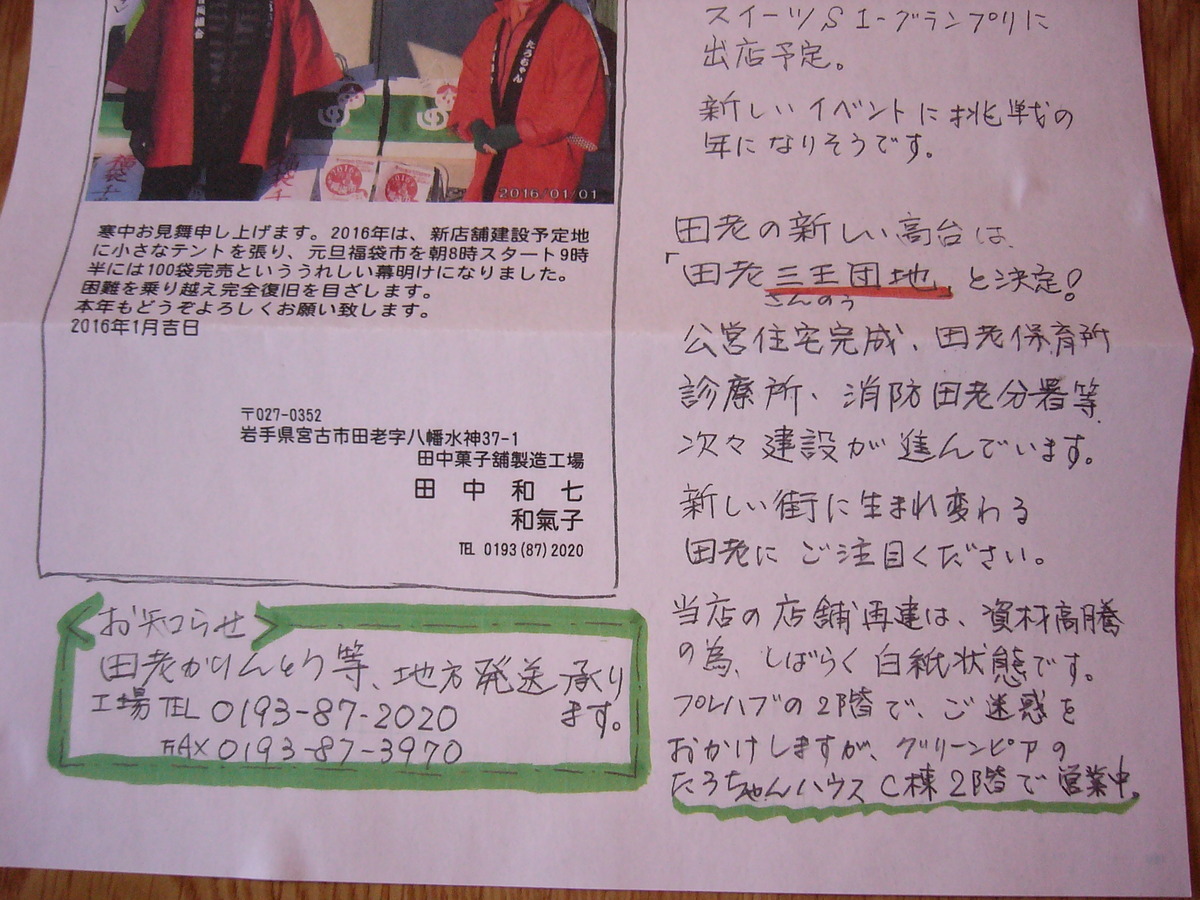 たろちゃん
2016/01/01
寒中お見舞申し上げます。2016年は、新店舗建設予定地
に小さなテントを張り、元旦福袋市を朝8時スタート9時
半には100袋完売といううれしい幕明けになりました。
困難を乗り越え完全復旧を目ざします。
本年もどうぞよろしくお願い致します。
2016年1月吉日
〒027-0352
岩手県宮古市田老字八幡水神37-1
田中菓子舗製造工場
田 中 和 七
和氣子
TEL 0193(87)2020
<お知らせ>
田老かりんとう等、地方発送承り
ます。
工場TEL 0193-87-2020
FAX 0193-87-3970
スイーツS1-グランプリに
出店予定。
新しいイベントに挑戦の
年になりそうです。
田老の新しい高台は、
「田老三王団地」と決定!
さんのう
公営住宅完成、田老保育所
診療所、消防田老分署等
次々建設が進んでいます。
新しい街に生まれ変わる
田老にご注目ください。
当店の店舗再建は、資材高騰
の為、しばらく白紙状態です。
プレハブの2階で、ご迷惑を
おかけしますが、グリーンピアの
たろちゃんハウスC棟2階で営業中。